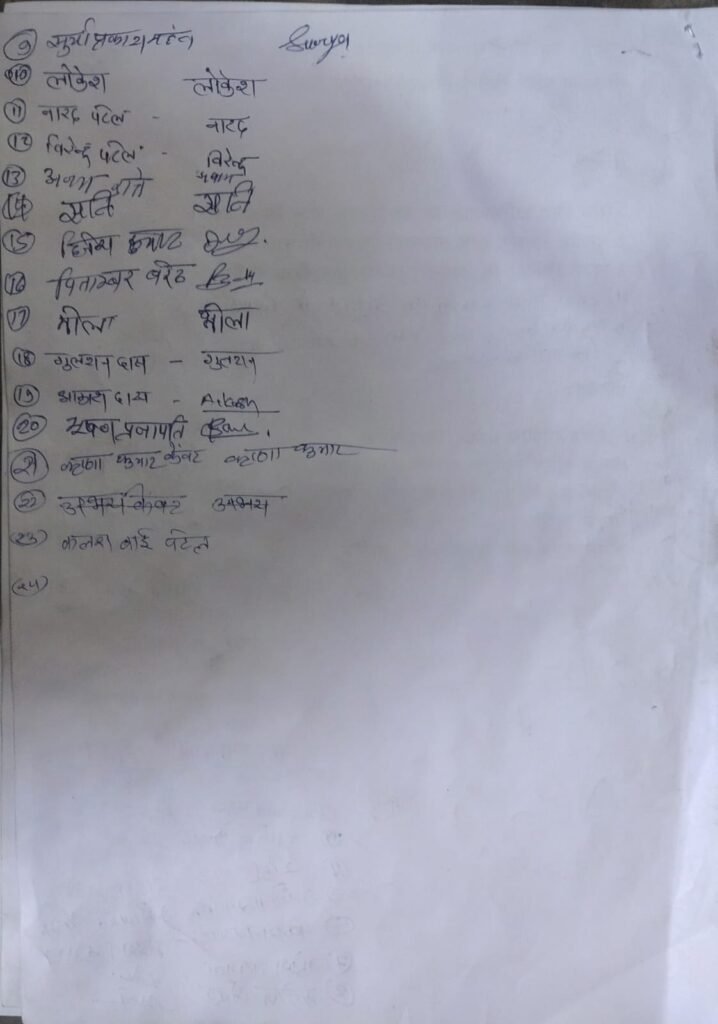 9 सुर्याप्रकाश महंत Surya
10 लोकेश लोकेश
11 नारद पटेल - नारद
12 विरेन्द्र पटेल - विरेन्द्र
13
14 सनि सनि
15 हितेश कुमार
16 पिताम्बर बरेठ
17 भोला भोला
18 गुलशन दास - गुलशन
19 आकाश दास - Akash
20 भुषण प्रजापति
21 कुमार केंवट कुमार
22 अभय केंवट अभय
23 कलश बाई पटेल
24